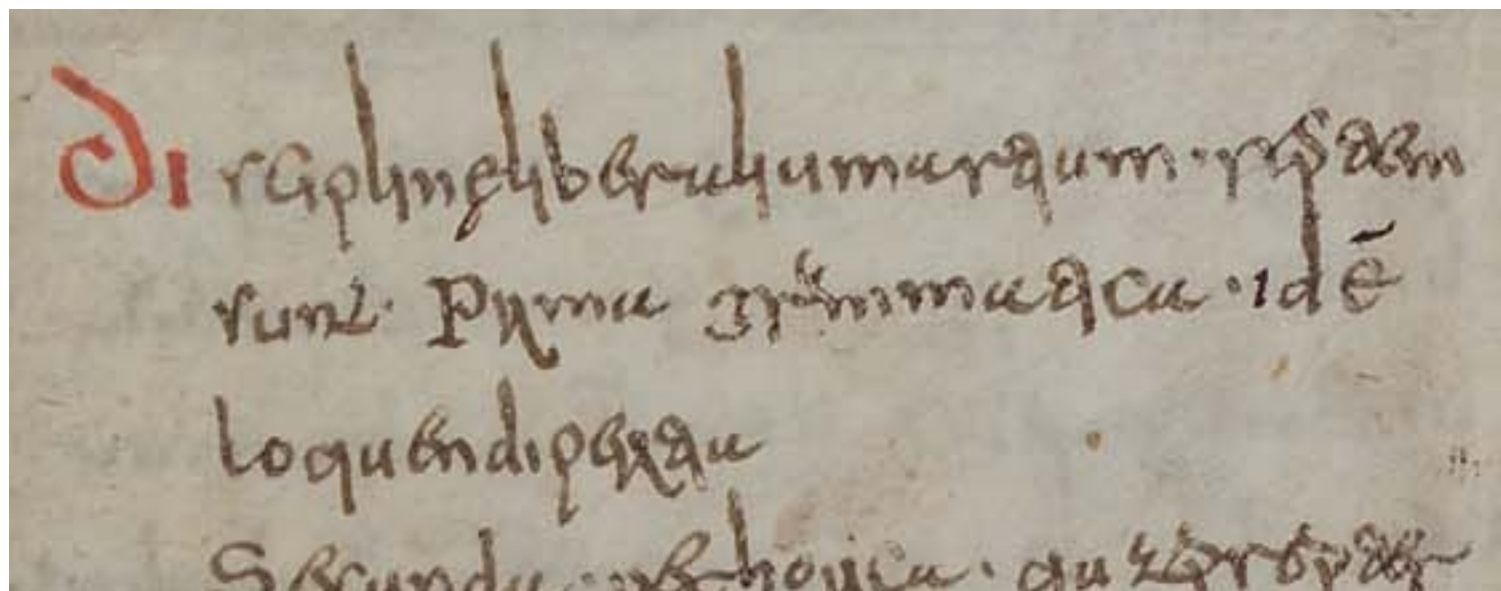 Disciplinę liberalium artium · septem
sunt. Prima grammatica · id ē
loquendi peritia
Secunda · rethorica · quę propter